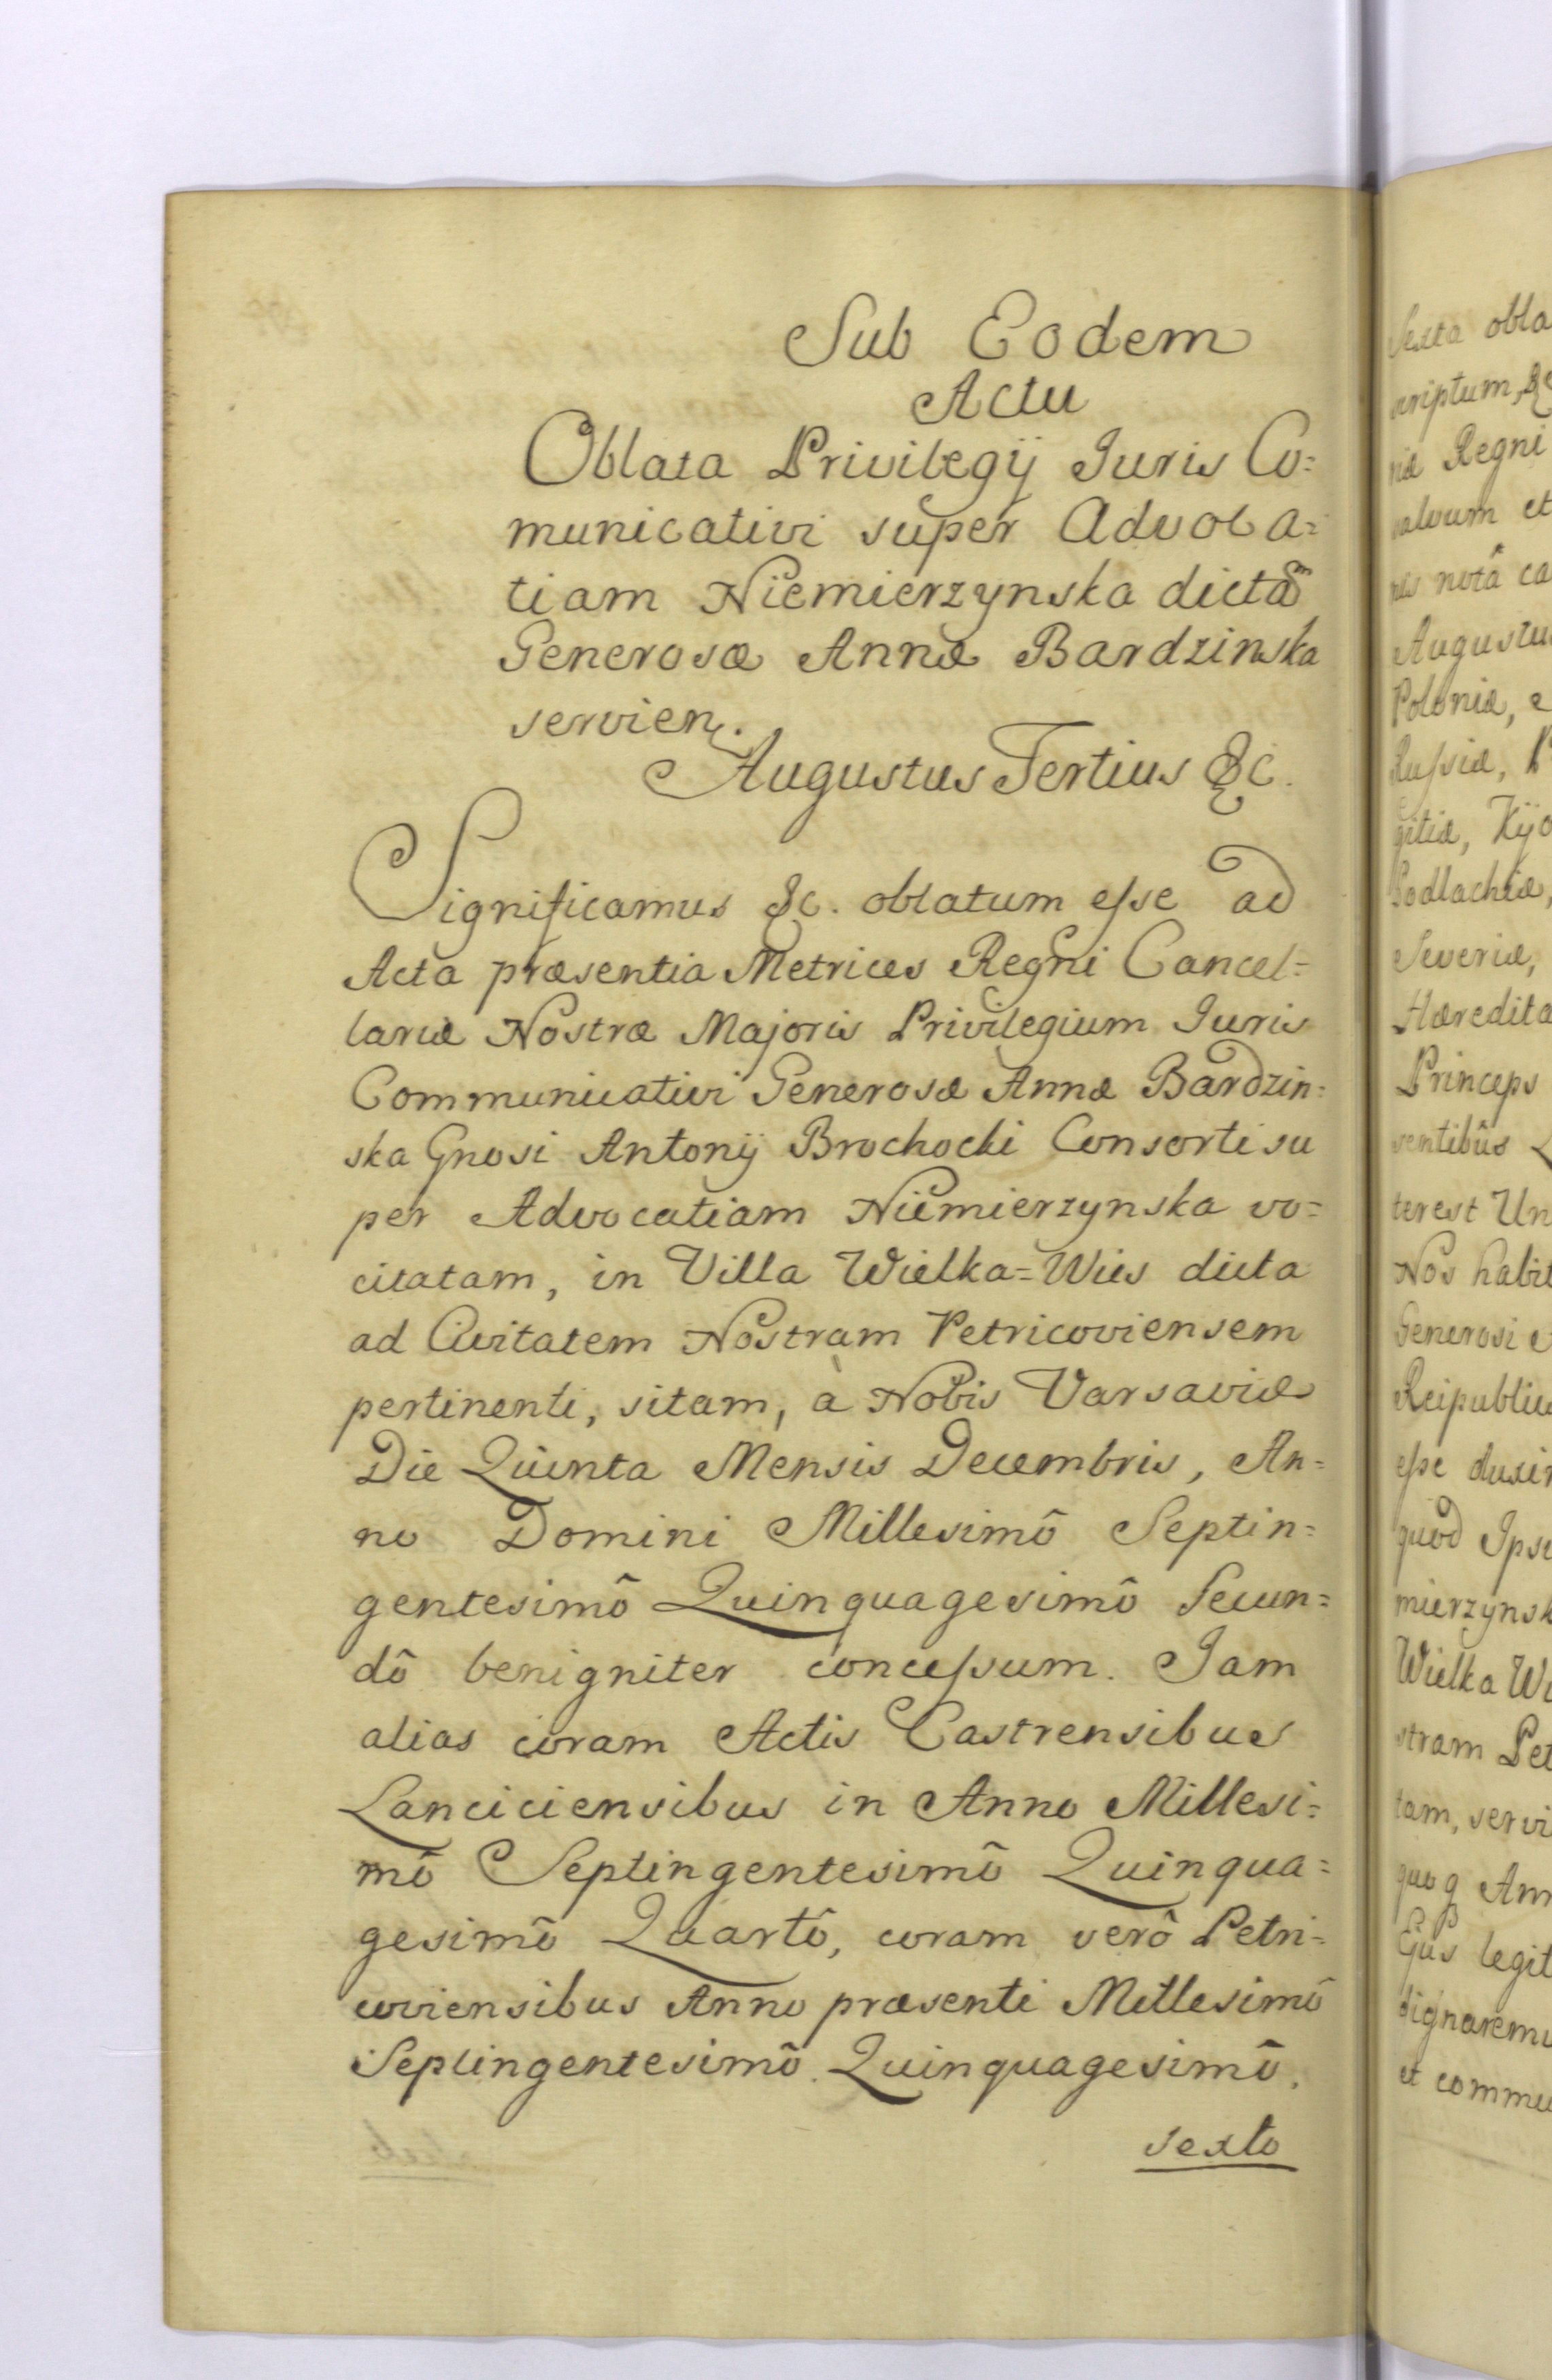 Sub Eodem
Actu
Oblata Privilegij Iuris Co=
municativi super Advoca=
tiam Niemierzynska dictam
Generosæ Annæ Bardzinska
servien.
Augustus Tertius &c.
Significamus &c. oblatum eſse ad
Acta præsentia Metrices Regni Cancel=
lariæ Nostræ Majoris Privilegium Iuris
Communicativi Generosæ Annæ Bardzin=
ska Gnosi Antonij Brochocki Consorti su
per Advocatiam Niemierzynska vo=
citatam, in Villa Wielka=Wies dicta
ad Civitatem Nostram Petricoviensem
pertinenti, sitam, à Nobis Varsaviæ
Die Quinta Mensis Decembris, An=
no Domini Millesimô Septin=
gentesimô Quinquagesimô Secun=
dô benigniter conceſsum. Iam
alias coram Actis Castrensibus
Lanciciensibus in Anno Millesi=
mô Septingentesimô Quinqua=
gesimô Quartô, coram verô Petri=
coviensibus Anno præsenti Millesimô
Septingentesimô Quinquagesimô.
sexto
Sexta obla
scriptum, &
niæ Regni
salvum et
res notâ ca
Augustu
Poloniæ, 
Ruſsiæ, P
gitiæ, Kijo
Podlachiæ,
Severiæ,
Hæredita
Princeps
sentibûs
terest Un
Nos habit
Generosi
Reipublic
eſse duxi
quod Ipsi
mierzynsk
Wielka Wi
stram Pet
tam, servi
quoq Ann
Ejus legit
dignaremu
et commu